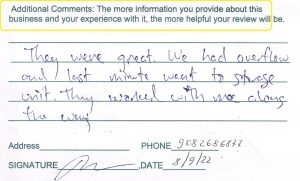 Additional Comments: The more information you provide about this
business and your experience with it, the more helpful your review will be.
They were great. We had overflow
and last minute went to storage
unit. They worked with me along
the way
Address
PHONE 9082686872
SIGNATURE
,DATE 8/9/22